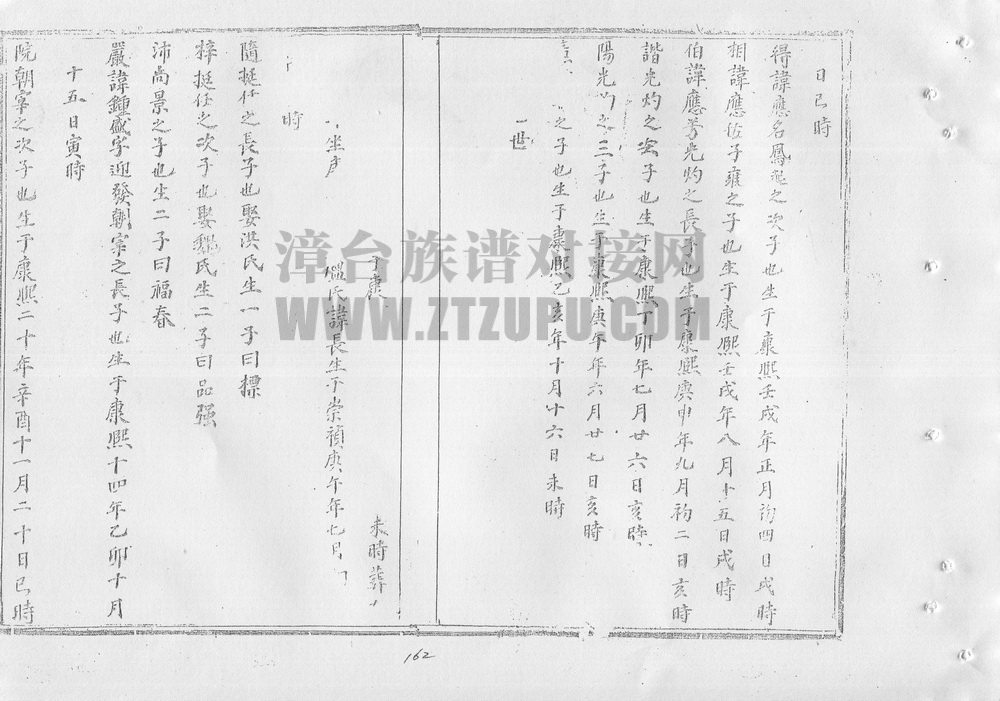 日巳時
得諱應名鳳之次子也生于康熙壬戌年正月初四日戌時
相諱應佐子雍之子也生于康熙壬戌年八月十五日戌時
伯諱應芳光灼之長子也生于康熙庚申年九月初二日亥時
諧光灼之次子也生于康熙丁卯年七月廿六日亥時
陽光灼之三子也生于康熙庚午年六月廿七日亥時
之子也生于康熙乙亥年十月十六日未時
一世
未時葬
于康
溫氏諱長生于崇禎庚午年七月
坐
時
隨挺任之長子也娶洪氏生一子曰標
梓挺任之次子也娶魏氏生二子曰品强
沛尚景之子也生二子曰福春
嚴諱鍾盛字迎發朝宰之長子也生于康熙十四年乙卯十月
十五日寅時
院朝宰之次子也生于康熙二十年辛酉十一月二十日巳時
漳台族谱对接网
WWW.ZTZUPU.COM
162